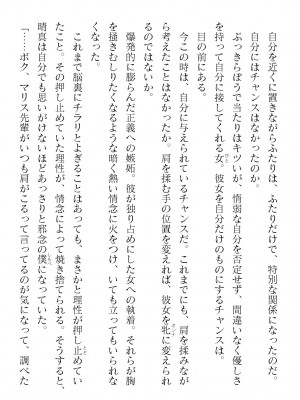 自分を近くに置きながらふたりは、ふたりだけで、特別な関係になったのだ。
自分にはチャンスはなかったのか。
ぶっきらぼうで当たりはキツいが、惰弱な自分を否定せず、間違いなく優しさ
を持って自分に接してくれる女。彼女を自分だけのものにするチャンスは。
目の前にある。
今この時は、自分に与えられているチャンスだ。これまでにも、肩を揉みなが
ら考えたことはなかったか。肩を揉む手の位置を変えれば、彼女を牝に変えられ
るのではないか。
爆発的に膨らんだ正義への嫉妬。彼が独り占めにした女への執着。それらが胸
を掻きむしりたくなるような暗く熱い情念に火をつけ、いても立ってもいられな
くなった。
これまで脳裏にチラリとよぎることはあっても、まさかと理性が押し止めてい
たこと。その押し止めていた理性が、情念によって焼き捨てられる。そうすると、
晴真は自分でも思いがけないほどあっさりと邪念の僕になっていた。
「……ボク、マリス先輩がいつも肩がこるって言ってるのが気になって、調べた